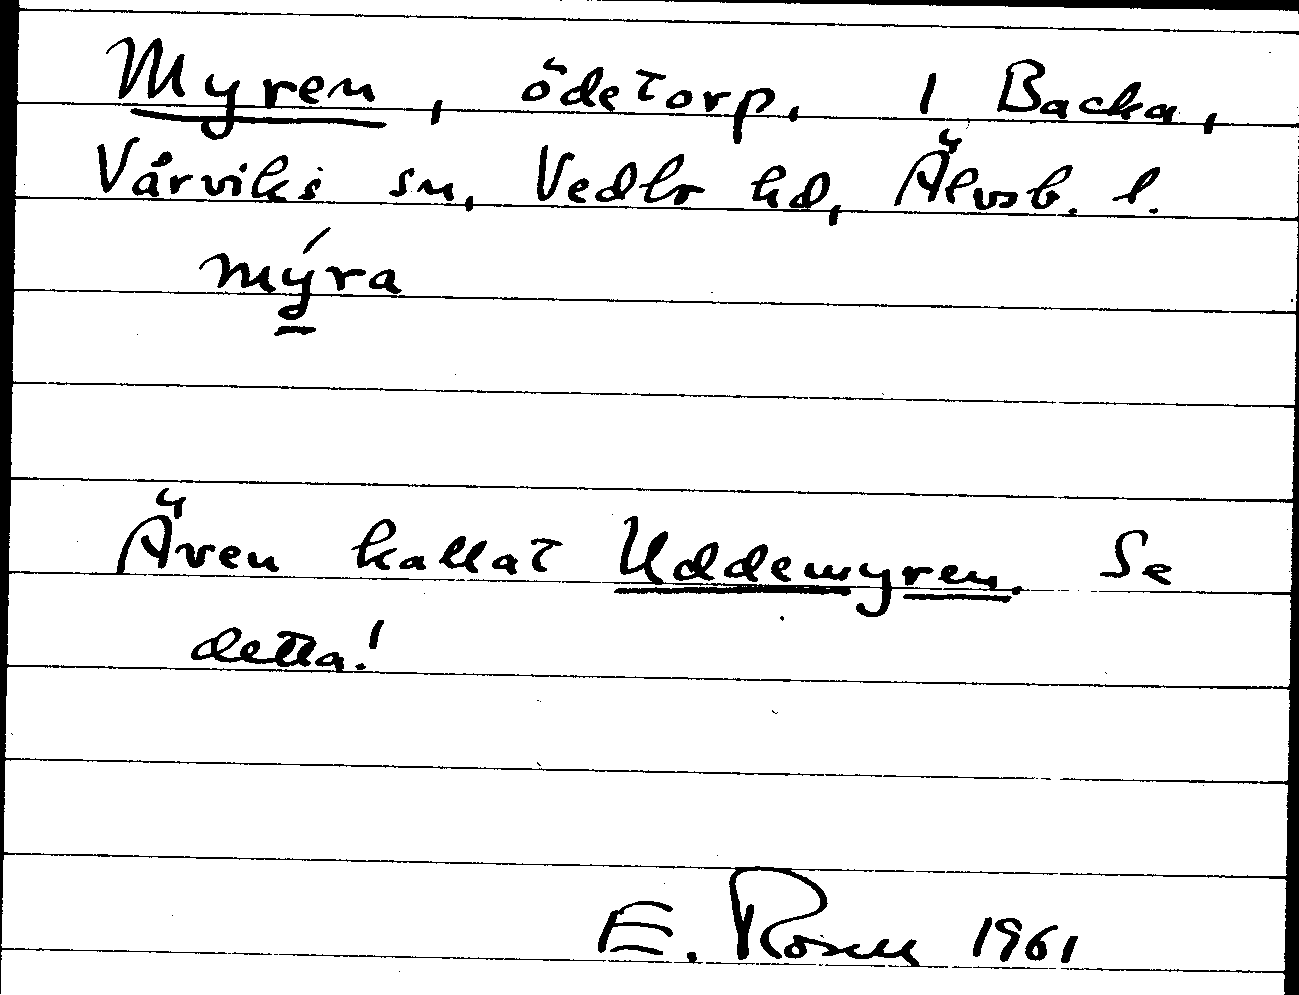 Myren, ödetorp. 1 Backa,
Vårviks sn, Vedbo hd, Älvsb. l.
mýra
Även kallat Uddemyren. Se
detta!
E. Rosen 1961